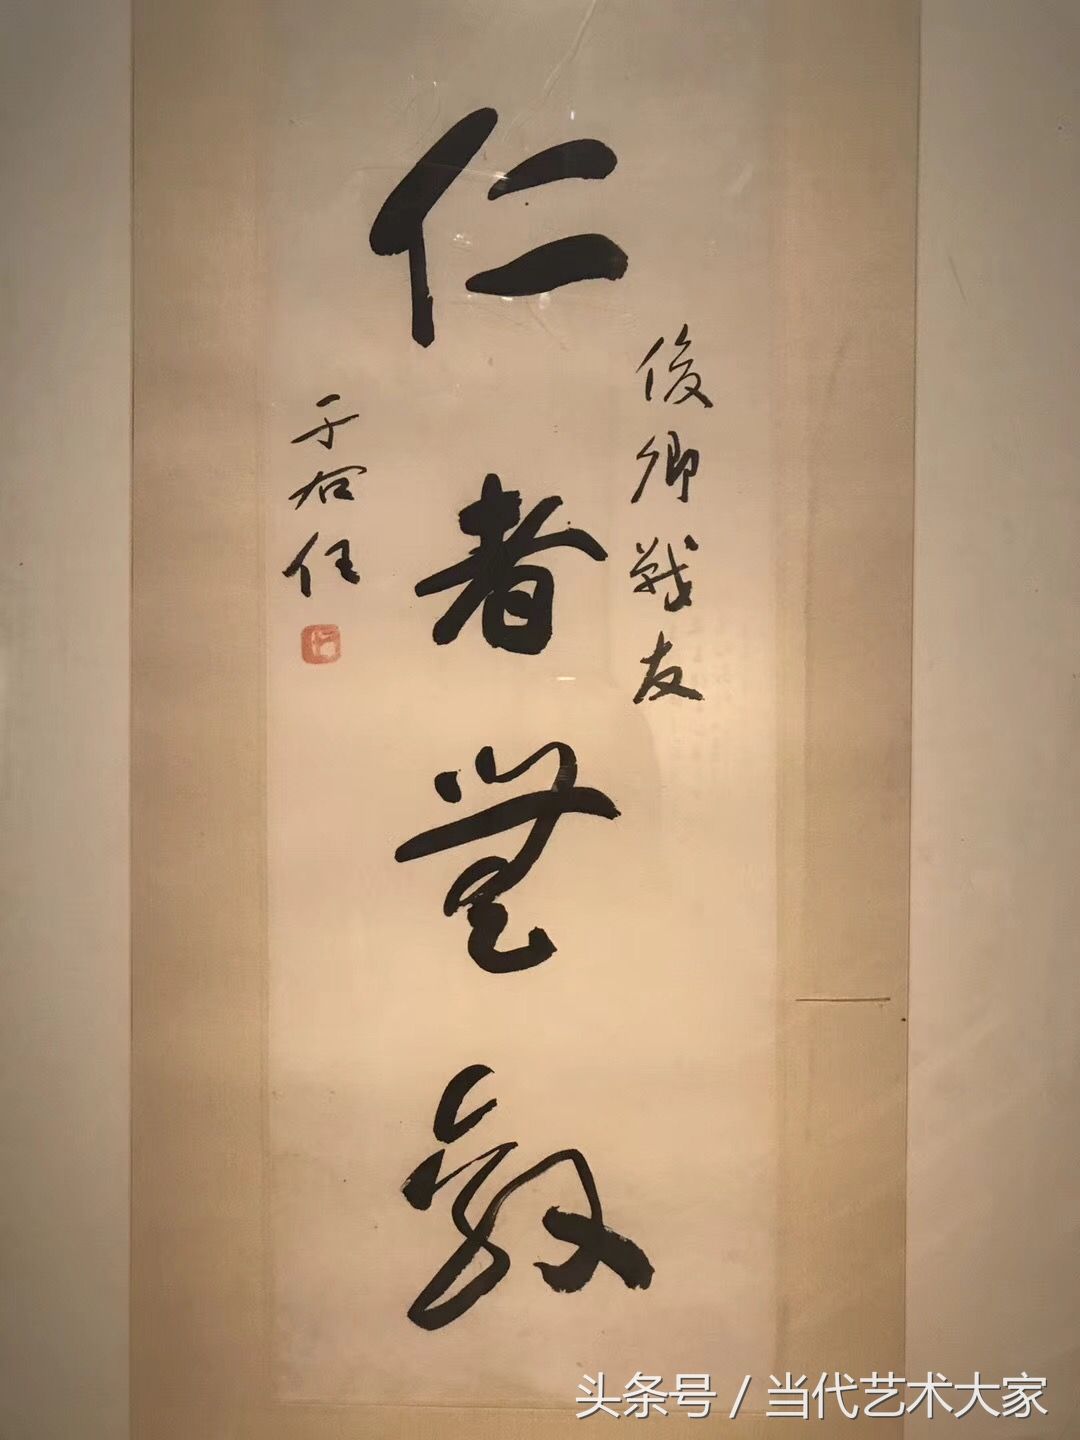 俊卿戰友
仁者無敵
于右任
头条号 / 当代艺术大家